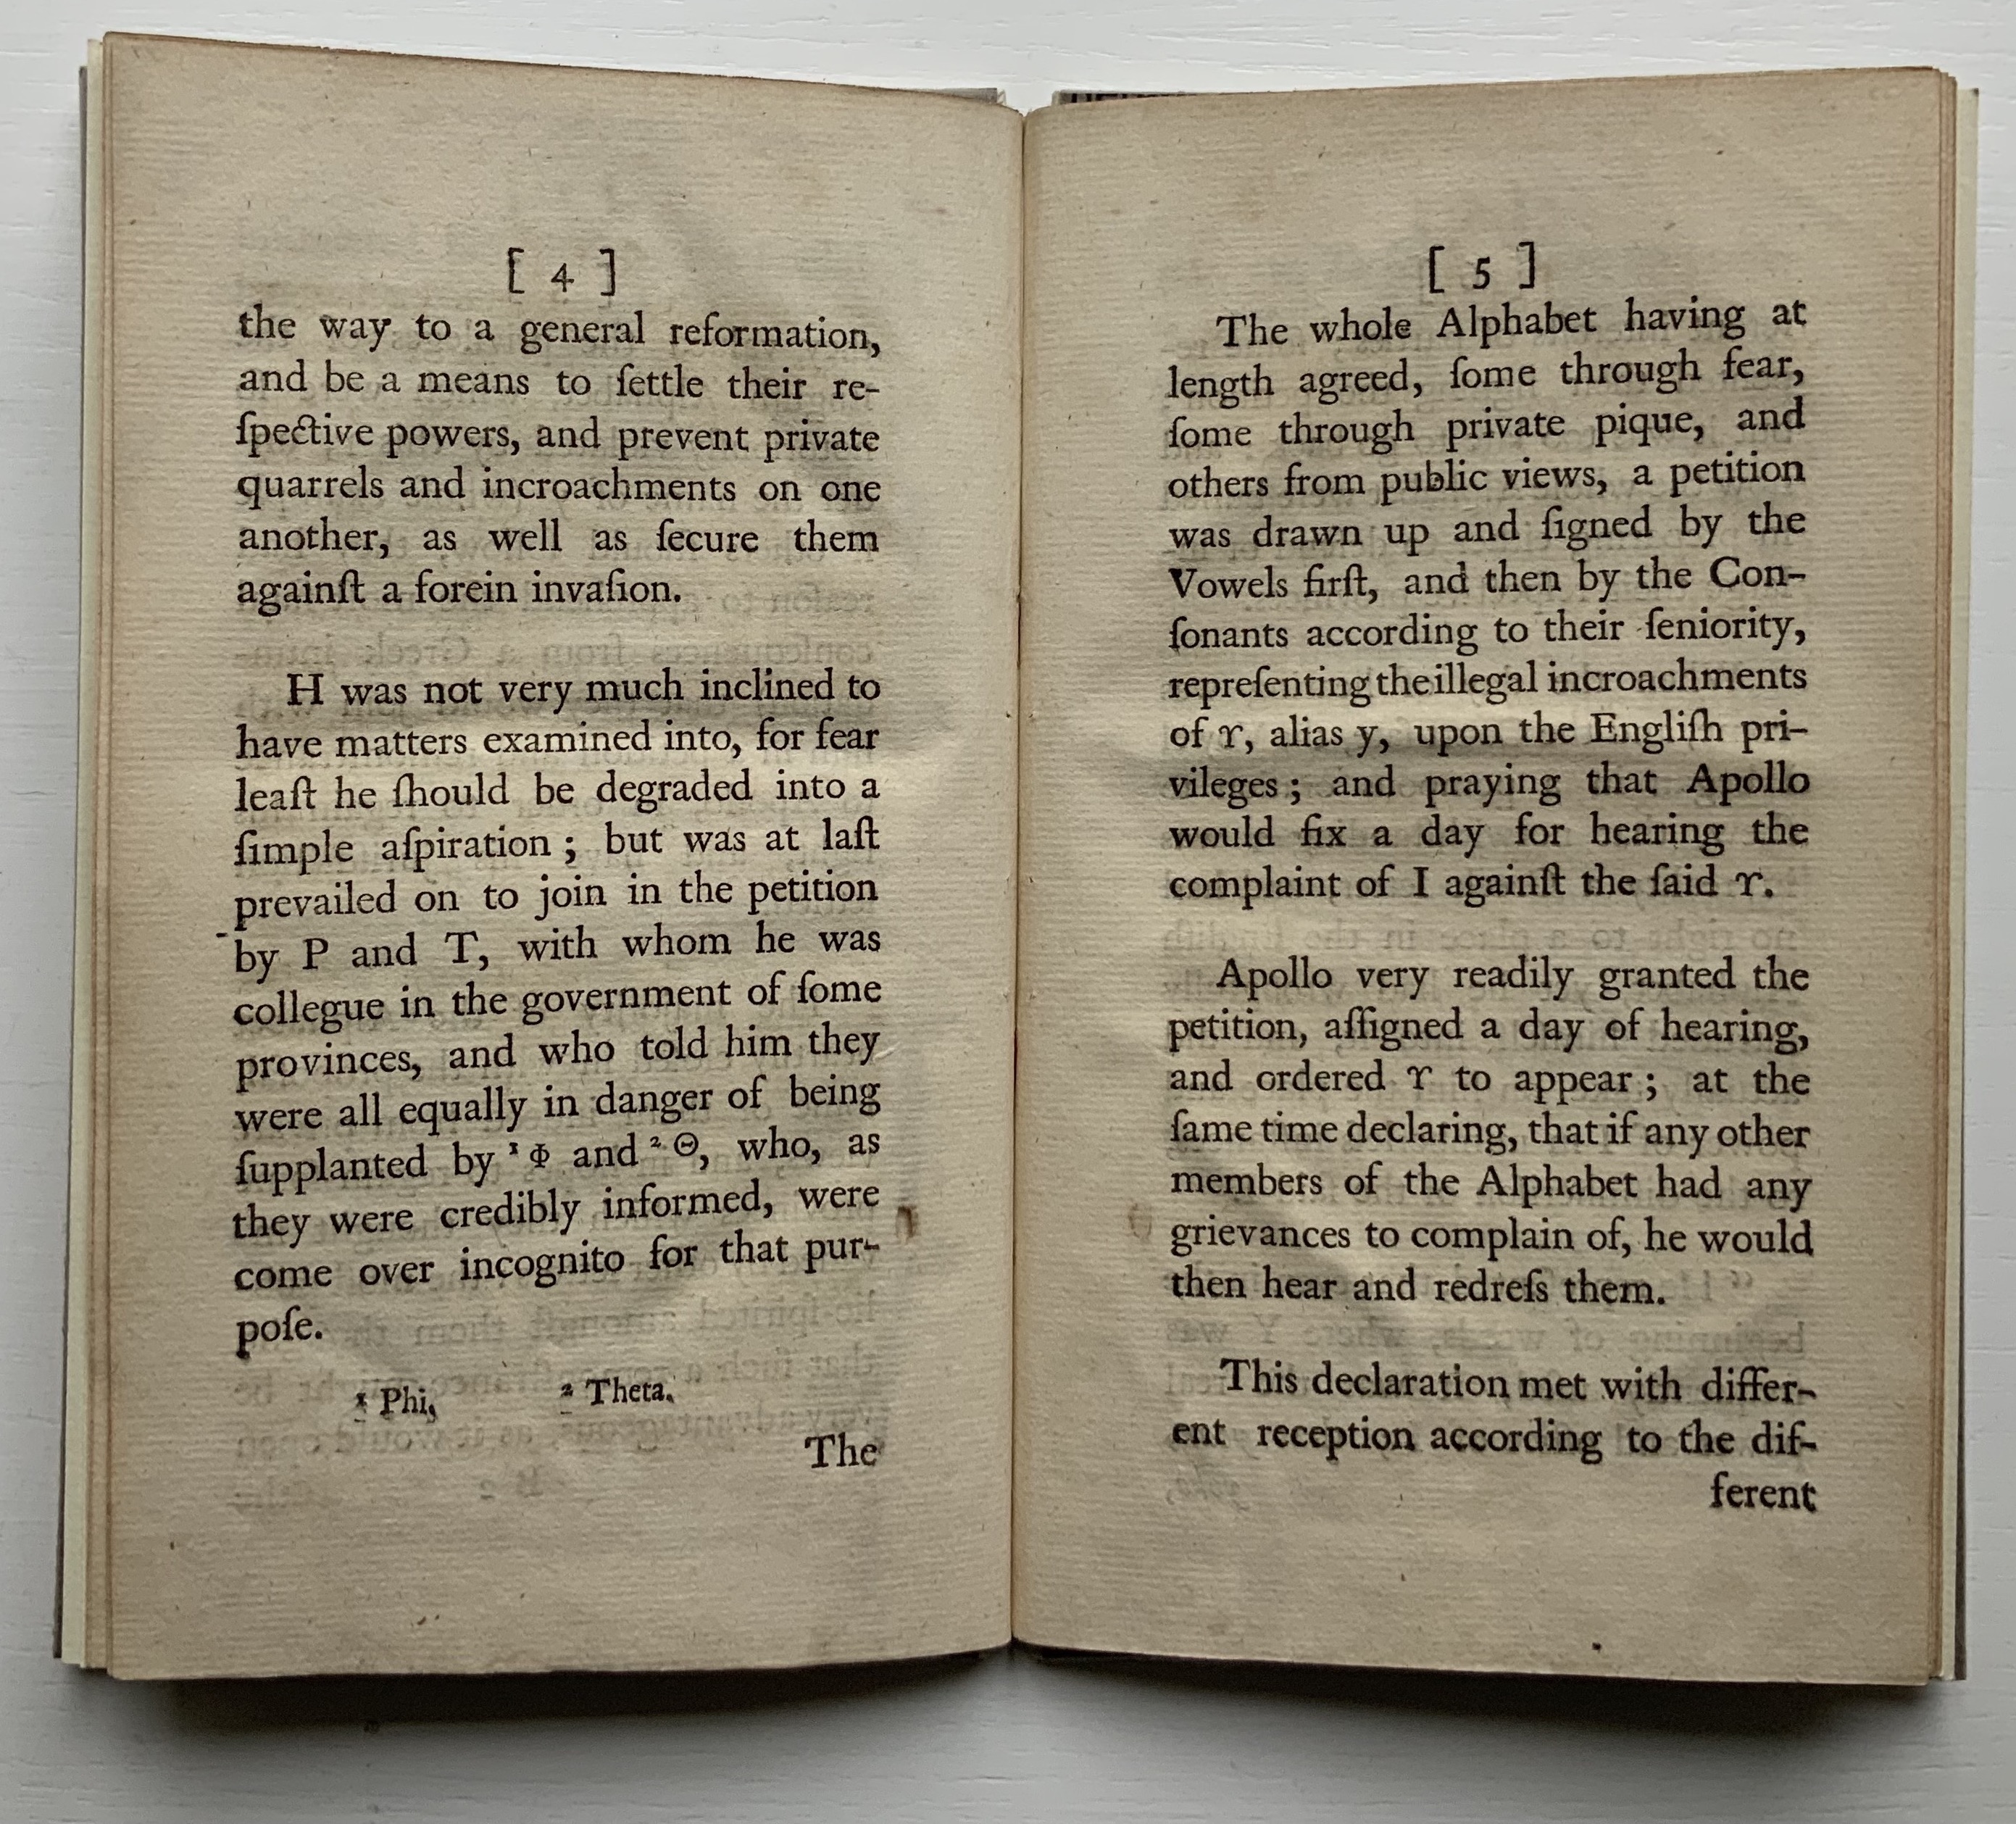 [ 4 ]
the way to a general reformation,
and be a means to ſettle their re-
ſpective powers, and prevent private
quarrels and incroachments on one
another, as well as ſecure them
againſt a forein invaſion.
H was not very much inclined to
have matters examined into, for fear
leaſt he ſhould be degraded into a
ſimple aſpiration ; but was at laſt
prevailed on to join in the petition
by P and T, with whom he was
collegue in the government of ſome
provinces, and who told him they
were all equally in danger of being
ſupplanted by ¹ Φ and ² Θ, who, as
they were credibly informed, were
come over incognito for that pur-
poſe.
¹ Phi, ² Theta.
The
[ 5 ]
The whole Alphabet having at
length agreed, ſome through fear,
ſome through private pique, and
others from public views, a petition
was drawn up and ſigned by the
Vowels firſt, and then by the Con-
ſonants according to their ſeniority,
repreſenting the illegal incroachments
of ϒ, alias y, upon the Engliſh pri-
vileges ; and praying that Apollo
would fix a day for hearing the
complaint of I againſt the ſaid ϒ.
Apollo very readily granted the
petition, aſſigned a day of hearing,
and ordered ϒ to appear ; at the
ſame time declaring, that if any other
members of the Alphabet had any
grievances to complain of, he would
then hear and redreſs them.
This declaration met with differ-
ent reception according to the dif-
ferent